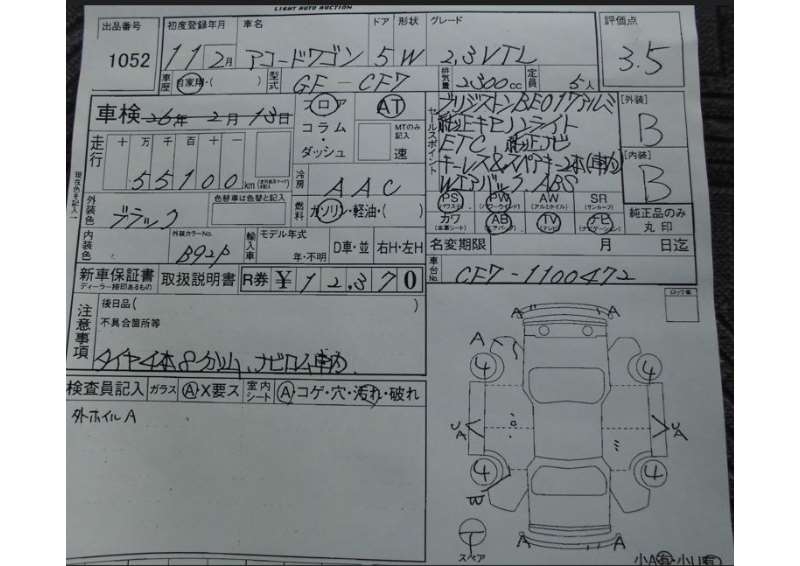 LIGHT AUTO AUCTION
出品番号 1052
初度登録年月 11 2月
車名 アコードワゴン
ドア 5
形状 W
グレード 2.3VTL
評価点 3.5
車歴 自家用・( )
型式 GF-CF7
排気量 2300cc
定員 5人
車検 26年 2月 13日
フロア コラム・ダッシュ
AT
MTのみ記入 速
セールスポイント
純正キセノンライト
ETC, 純正ナビ
キーレス&スペアキー2本(車内)
Wエアバック ABS
[外装] B
[内装] B
走行 十 万 千 百 十 一
55100km
冷房 AAC
燃料 ガソリン・軽油・( )
現在色を記入
外装色 ブラック
色替車は色替と記入
PS (パワステ) PW (パワーウインド) AW (アルミホイル) SR (サンルーフ)
カワ (本革シート) AB (エアバック) TV (テレビ) ナビ (ナビゲーション)
純正品のみ丸印
内装色
外装カラーNo. B92P
輸入車
モデル年式 年・不明
D車・並
右H・左H
名変期限 月 日迄
新車保証書 ディーラー捺印あるもの
取扱説明書
R券 ¥12,370
車台No. CF7-1100472
注意事項
後日品( )
不具合箇所等
タイヤ4本8分山、ナビロム車内
検査員記入
ガラス A X要ス
室内シート A コゲ・穴・汚れ・破れ
外ホイルA
A A
A
4 4
UA UA
4 4
W
A A
T
スペア
小A有・小U有